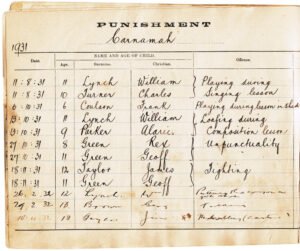 PUNISHMENT
Carnamah
1931
NAME AND AGE OF CHILD.
Date. Age. Surname. Christian. Offence.
11·8·31 11 Lynch William Playing during
11·8·31 10 Turner Charles Singing lesson
6·10·31 Coulson Frank Playing during lesson
13·10·31 11 Lynch William Loafing during
13·10·31 9 Parker Alaric. Composition lesson
27·10·31 8 Green Rex Unpunctuality
27·10·31 11 Green Geoff
18·11·31 12 Taylor James Fighting
18·11·31 11 Green Geoff
2·32 12 Lynch
2·32 13 Brown